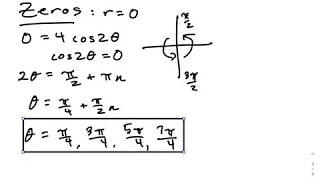 Zeros: r=0
0 = 4 cos2θ
cos2θ = 0
2θ = π/2 + πn
θ = π/4 + π/2 n
θ = π/4, 3π/4, 5π/4, 7π/4
π/2
3π/2